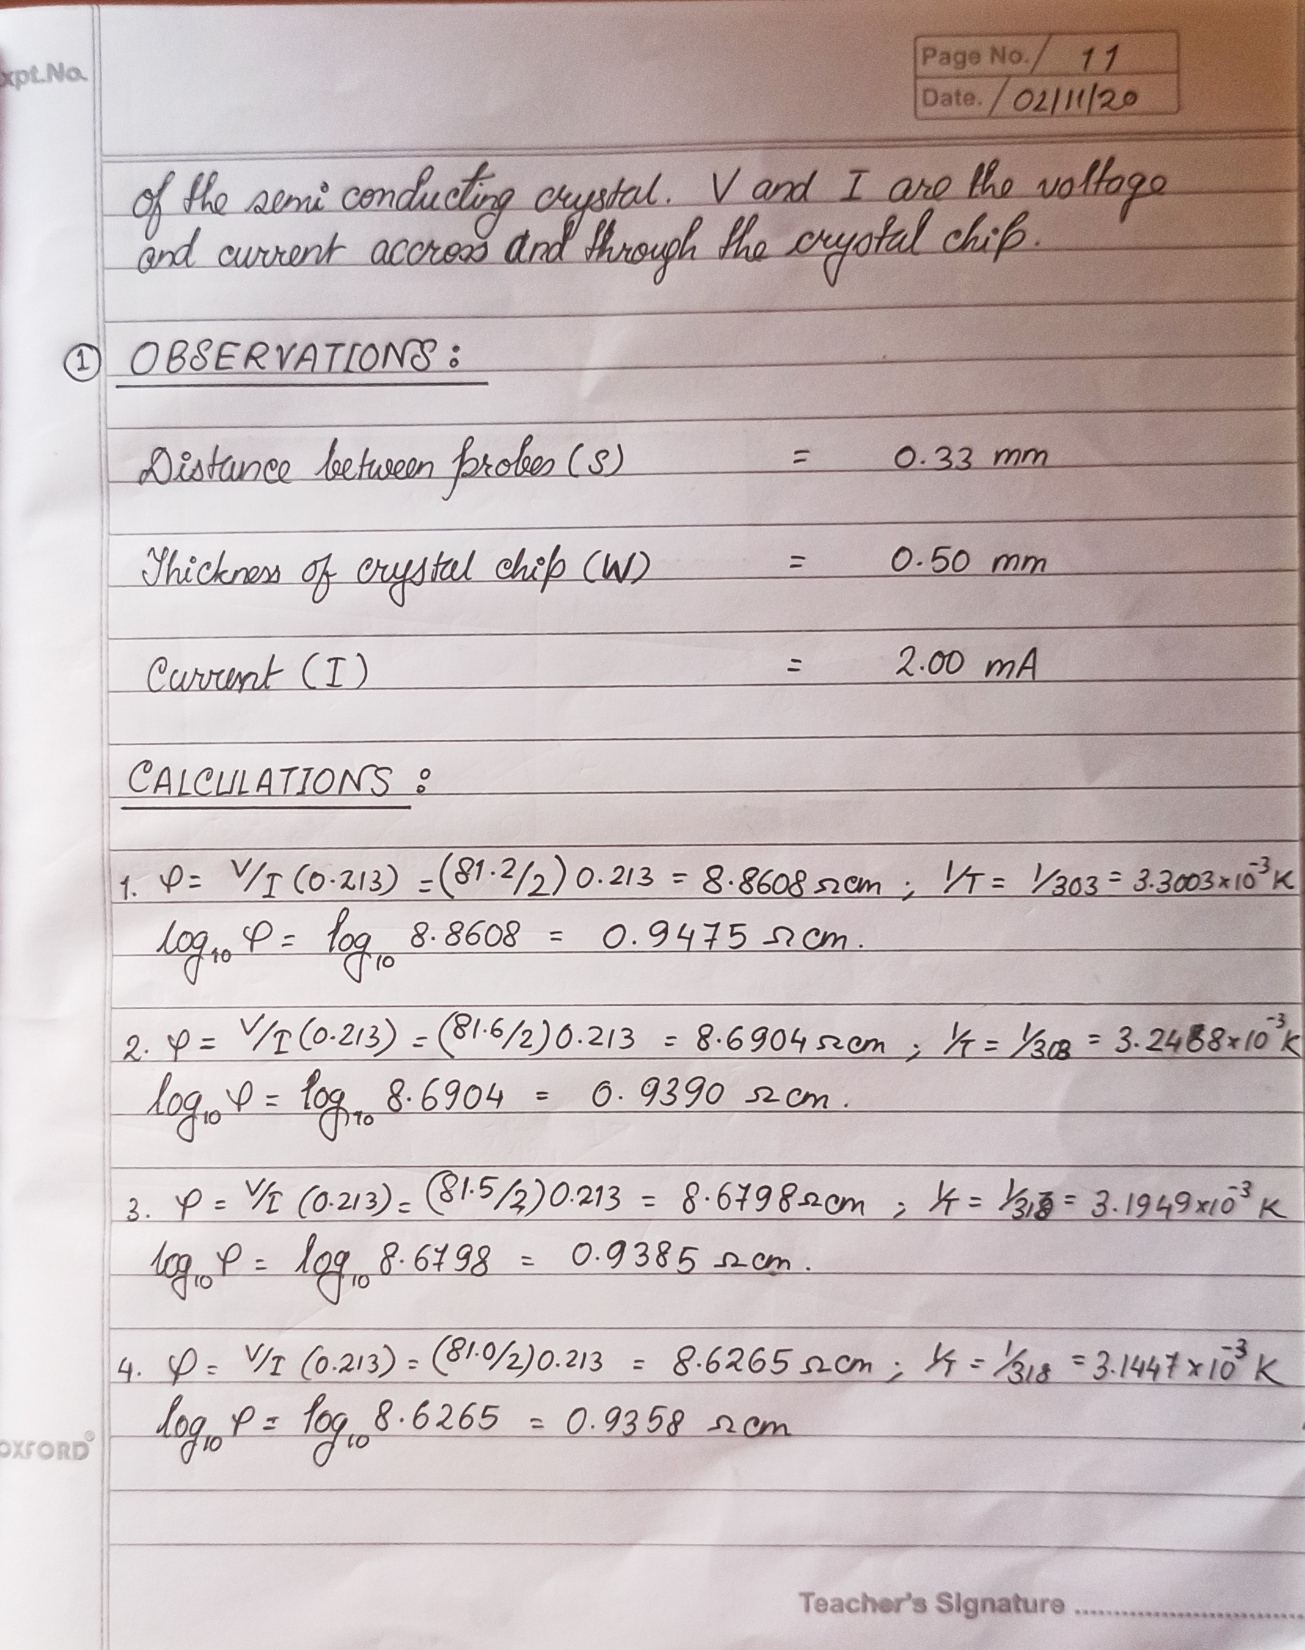 xpt.No.
Page No. / 11
Date. / 02/11/20
of the semi conducting crystal. V and I are the voltage
and current accross and through the crystal chip.
① OBSERVATIONS :
Distance between probes (S) = 0.33 mm
Thickness of crystal chip (W) = 0.50 mm
Current (I) = 2.00 mA
CALCULATIONS :
1. φ = V/I (0.213) = (81.2/2) 0.213 = 8.8608 Ωcm ; 1/T = 1/303 = 3.3003×10⁻³ K
log₁₀ φ = log₁₀ 8.8608 = 0.9475 Ωcm.
2. φ = V/I (0.213) = (81.6/2) 0.213 = 8.6904 Ωcm ; 1/T = 1/308 = 3.2468×10⁻³ K
log₁₀ φ = log₁₀ 8.6904 = 0.9390 Ωcm.
3. φ = V/I (0.213) = (81.5/2) 0.213 = 8.6798 Ωcm ; 1/T = 1/313 = 3.1949×10⁻³ K
log₁₀ φ = log₁₀ 8.6798 = 0.9385 Ωcm.
4. φ = V/I (0.213) = (81.0/2) 0.213 = 8.6265 Ωcm ; 1/T = 1/318 = 3.1447×10⁻³ K
log₁₀ φ = log₁₀ 8.6265 = 0.9358 Ωcm
OXFORD®
Teacher's Signature ..............................